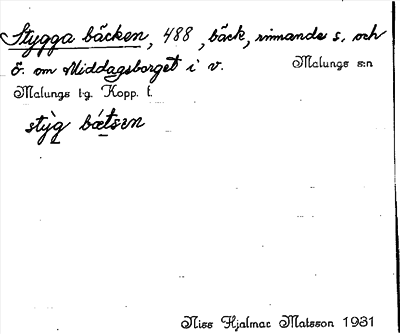 Stygga bäcken, 488, bäck, rinnande s. och
ö. om Middagsberget i v. Malungs s:n
Malungs t:g. Kopp. l.
stỳg bǽtsɛn
Niss Hjalmar Matsson 1931